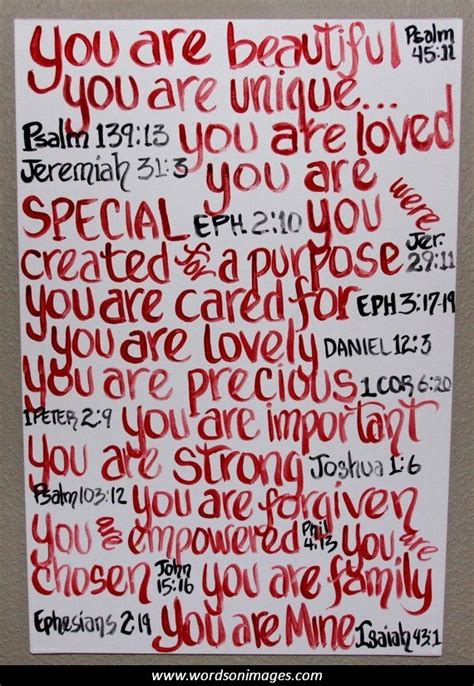 you are beautiful Psalm 45:11
you are unique...
Psalm 139:13 you are loved
Jeremiah 31:3 you are
SPECIAL EPH. 2:10 you were
created for a purpose Jer. 29:11
you are cared for EPH 3:17-19
you are lovely DANIEL 12:3
you are precious 1 COR 6:20
1 PETER 2:9 you are important
you are strong Joshua 1:6
Psalm 103:12 you are forgiven
you are empowered Phil 4:13 you are
chosen John 15:16 you are family
Ephesians 2:19 you are Mine Isaiah 43:1
www.wordsonimages.com